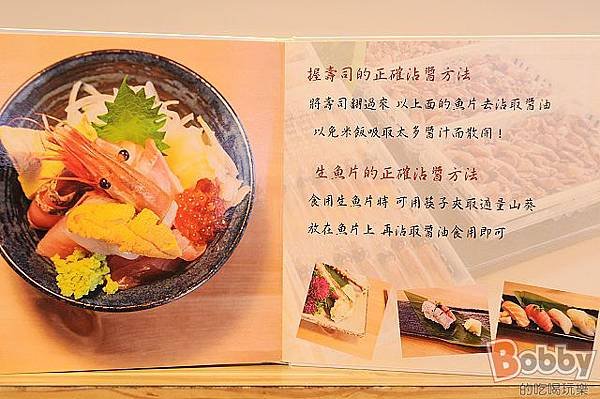 握壽司的正確沾醬方法
將壽司翻過來 以上面的魚片去沾取醬油
以免米飯吸取太多醬汁而散開！
生魚片的正確沾醬方法
食用生魚片時 可用筷子夾取適量山葵
放在魚片上 再沾取醬油食用即可
Bobby
的吃喝玩樂